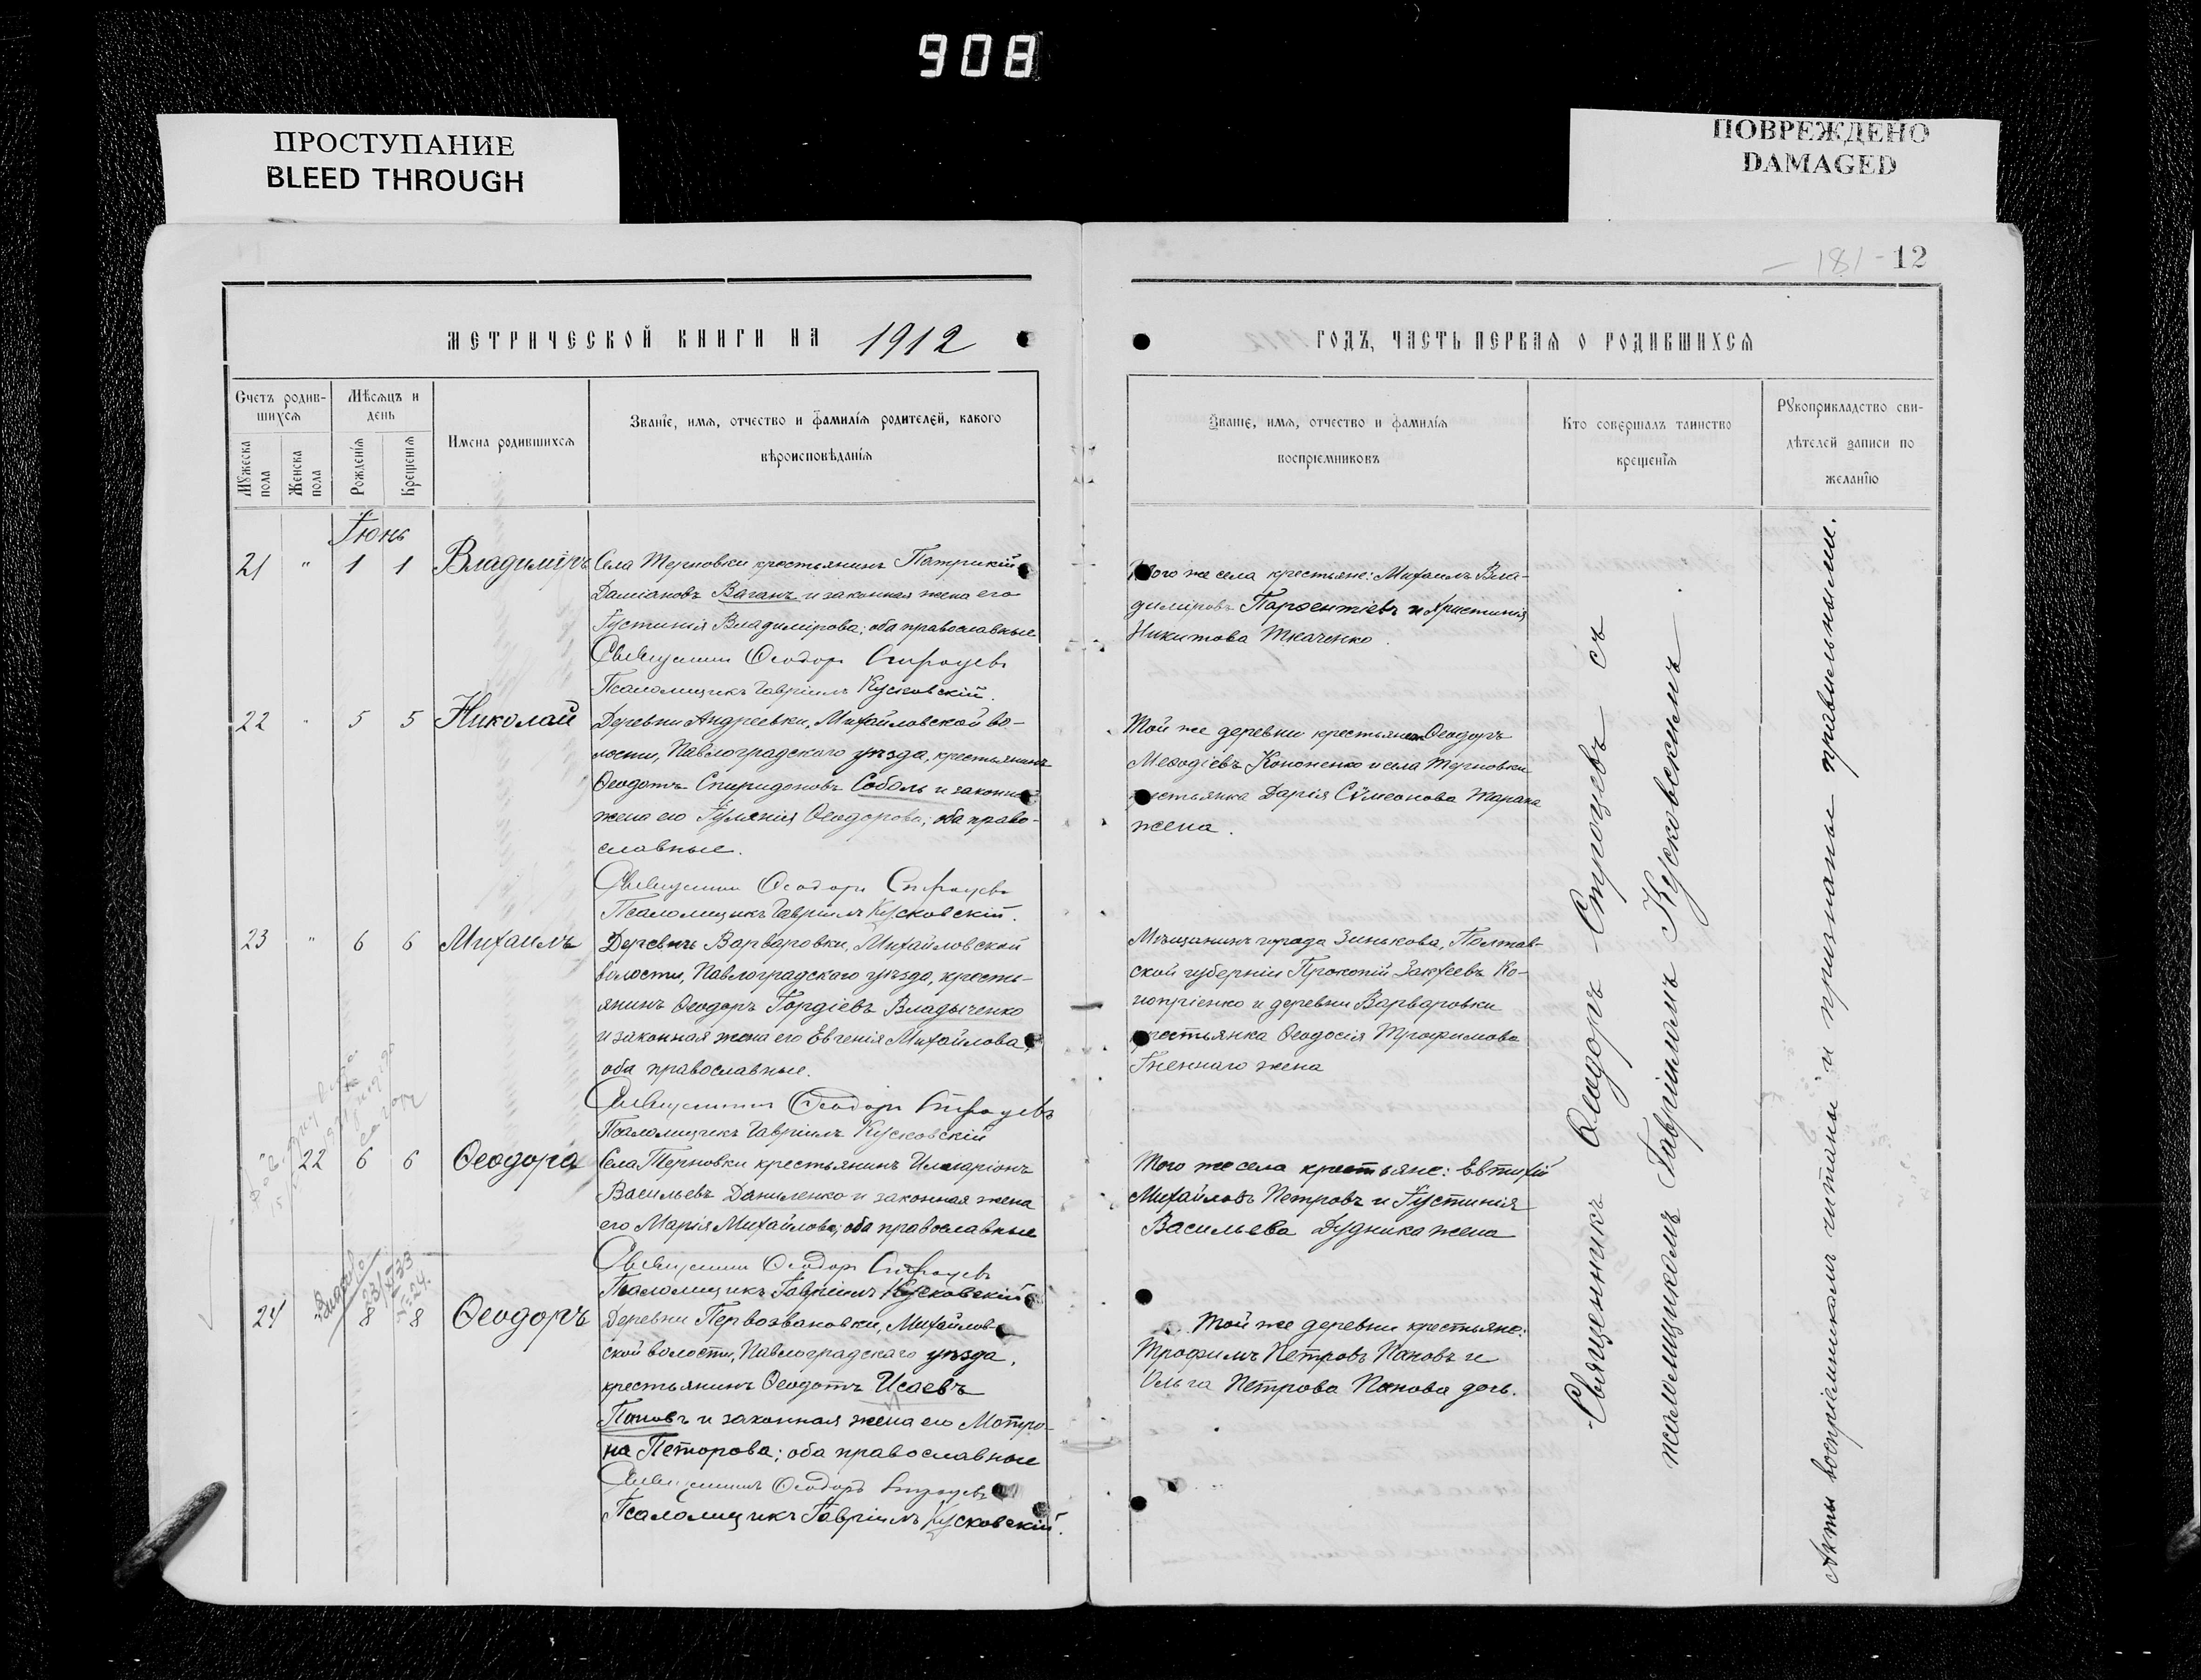 908
ПРОСТУПАНИЕ
BLEED THROUGH
ПОВРЕЖДЕНО
DAMAGED
181 - 12
МЕТРИЧЕСКОЙ КНИГИ НА 1912
ГОДЪ, ЧАСТЬ ПЕРВАЯ О РОДИВШИХСЯ
Счетъ родив-
шихся
Мужеска пола
Женска пола
Мѣсяцъ и
день
Рожденія
Крещенія
Имена родившихся
Званіе, имя, отчество и фамилія родителей, какого
вѣроисповѣданія
Званіе, имя, отчество и фамилія
воспріемниковъ
Кто совершалъ таинство
крещенія
Рукоприкладство сви-
дѣтелей записи по
желанію
Іюнь
21 " 1 1 Владиміръ
Села Терновки крестьянинъ Патрикій
Даміановъ Ваганъ и законная жена его
Іустинія Владимірова; оба православные
Священникъ Ѳеодоръ Строцевъ
Псаломщикъ Гавріилъ Кусковскій.
Того же села крестьяне: Михаилъ Вла-
диміровъ Парѳентіевъ и Христинія
Никитова Ткаченко.
22 " 5 5 Николай
Деревни Андреевки, Михайловской во-
лости, Павлоградскаго уѣзда, крестьянинъ
Ѳеодотъ Спиридоновъ Соболь и законная
жена его Іуліанія Ѳеодорова; оба право-
славные.
Священникъ Ѳеодоръ Строцевъ
Псаломщикъ Гавріилъ Кусковскій.
Той же деревни крестьянинъ Ѳеодоръ
Меѳодіевъ Кононенко и села Терновки
крестьянка Дарія Сѵмеонова Тарана
жена.
23 " 6 6 Михаилъ
Деревнѣ Варваровки, Михайловской
волости, Павлоградскаго уѣзда, кресть-
янинъ Ѳеодоръ Гордіевъ Владыченко
и законная жена его Евгенія Михайлова,
оба православные.
Священникъ Ѳеодоръ Строцевъ
Псаломщикъ Гавріилъ Кусковскій
Мѣщанинъ города Зинькова, Полтав-
ской губерніи Прокопій Закхеевъ Ко-
ноприенко и деревни Варваровки
крестьянка Ѳеодосія Трофимова
Гненнаго жена
22 6 6 Ѳеодора
Села Терновки крестьянинъ Иларіонъ
Васильевъ Даниленко и законная жена
его Марія Михайлова; оба православные
Священникъ Ѳеодоръ Строцевъ
Псаломщикъ Гавріилъ Кусковскій
Того же села крестьяне: Евтихій
Михайловъ Петровъ и Іустинія
Васильева Дудника жена
24 8 8 Ѳеодоръ
Деревни Первозвановки, Михайлов-
ской волости, Павлоградскаго уѣзда,
крестьянинъ Ѳеодотъ Исаевъ
Поповъ и законная жена его Матро-
на Петорова; оба православные
Священникъ Ѳеодоръ Строцевъ
Псаломщикъ Гавріилъ Кусковскій.
Той же деревни крестьяне:
Трофимъ Петровъ Пановъ и
Ольга Петрова Панова дочь.
Священникъ Ѳеодоръ Строцевъ съ
псаломщикомъ Гавріиломъ Кусковскимъ.
Акты воспріемникамъ читаны и признаны правильными.